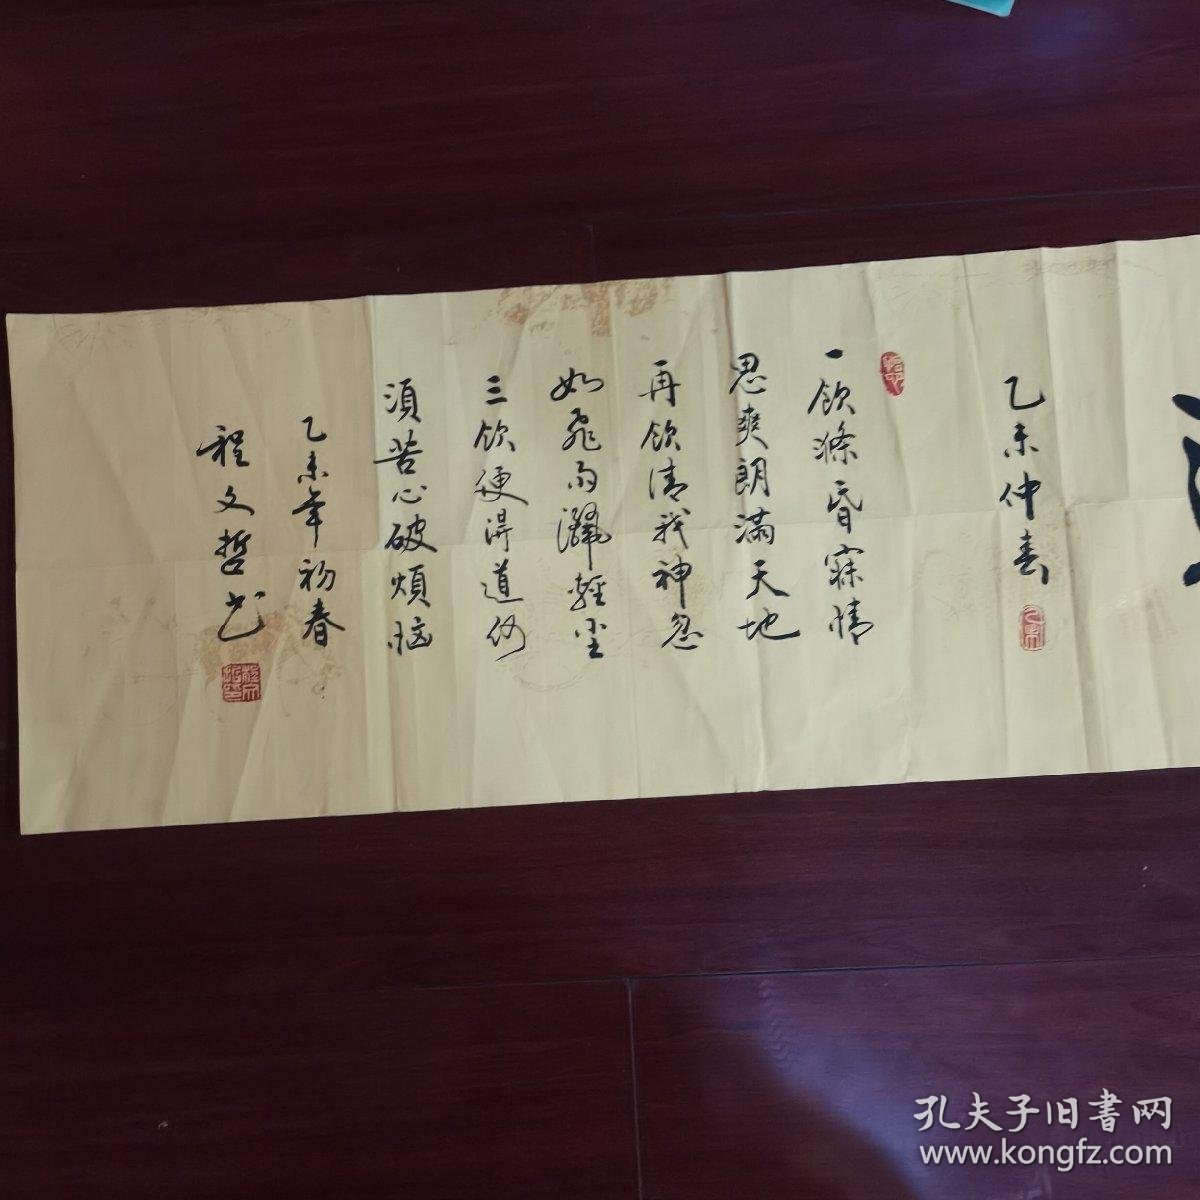 乙未仲春
一飲滌昏寐情
思爽朗滿天地
再飲清我神忽
如飛雨灑輕塵
三飲便得道何
須苦心破煩惱
乙未年初春
程文哲书
孔夫子旧書网
www.kongfz.com